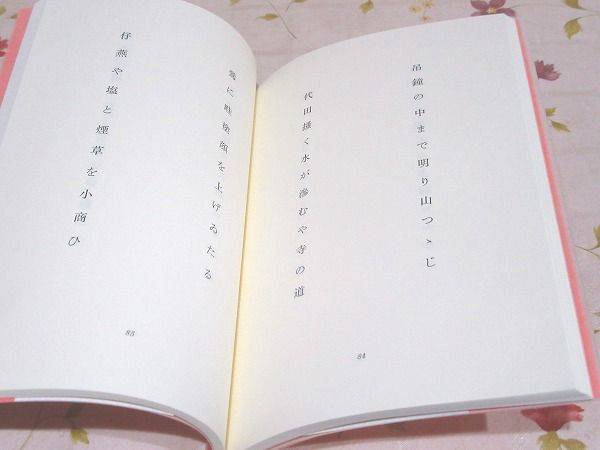 吊鐘の中まで明り山つゝじ
代田掻く水が滲むや寺の道
84
に畦塗顔を上げゐたる
仔燕や塩と煙草を小商ひ
85